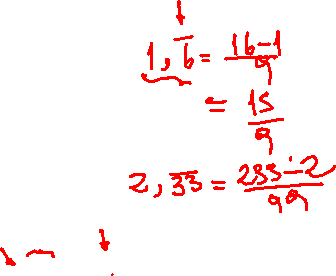 1,6̅ = 16-1/9
= 15/9
2,3̅3̅ = 233-2/99